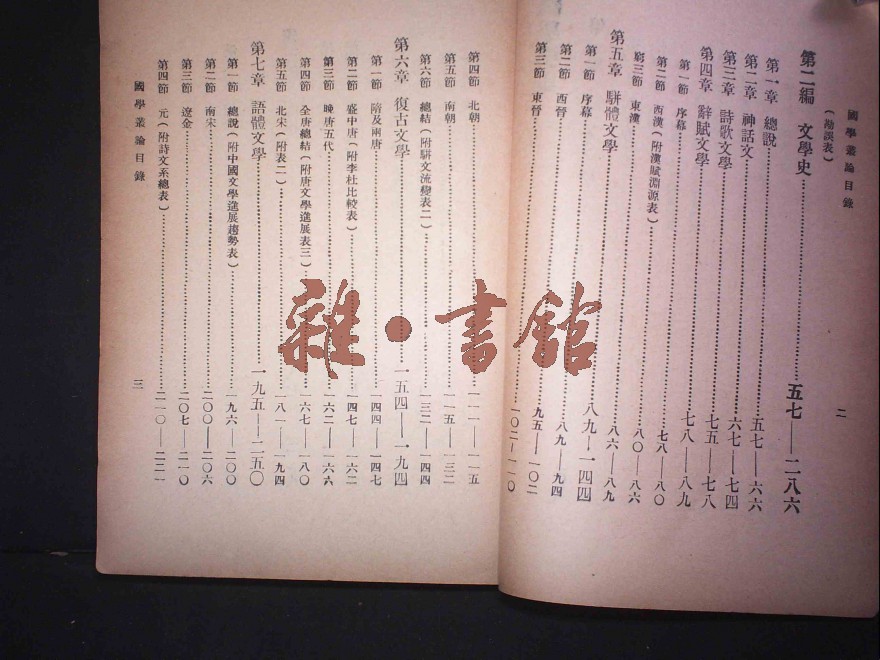 國學叢論目錄 二
(勘誤表)
第二編 文學史……五七——二八六
第一章 總說……五七——六六
第二章 神話文……六七——七四
第三章 詩歌文學……七五——七八
第四章 辭賦文學……七八——八九
第一節 序幕……七八——八〇
第二節 西漢(附漢賦淵源表)……八〇——八六
窮三節 東漢……八六——八九
第五章 駢體文學……八九——一四四
第一節 序幕……八九——九四
第二節 西晉……九五——一〇二
第三節 東晉……一〇二——一一〇
第四節 北朝……一一一——一一五
第五節 南朝……一一五——一三二
第六節 總結(附駢文流變表二)……一三二——一四四
第六章 復古文學……一五四——一九四
第一節 隋及兩唐……一四四——一四七
第二節 盛中唐(附李杜比較表)……一四七——一六二
第三節 晚唐五代……一六二——一六六
第四節 全唐總結(附唐文學進展表三)……一六七——一八〇
第五節 北宋(附表二)……一八一——一九四
第七章 語體文學……一九五——二五〇
第一節 總說(附中國文學進展趨勢表)……一九六——二〇〇
第二節 南宋……二〇〇——二〇六
第三節 遼金……二〇七——二一〇
第四節 元(附詩文系總表)……二一〇——二二一
國學叢論目錄 三
雜·書館